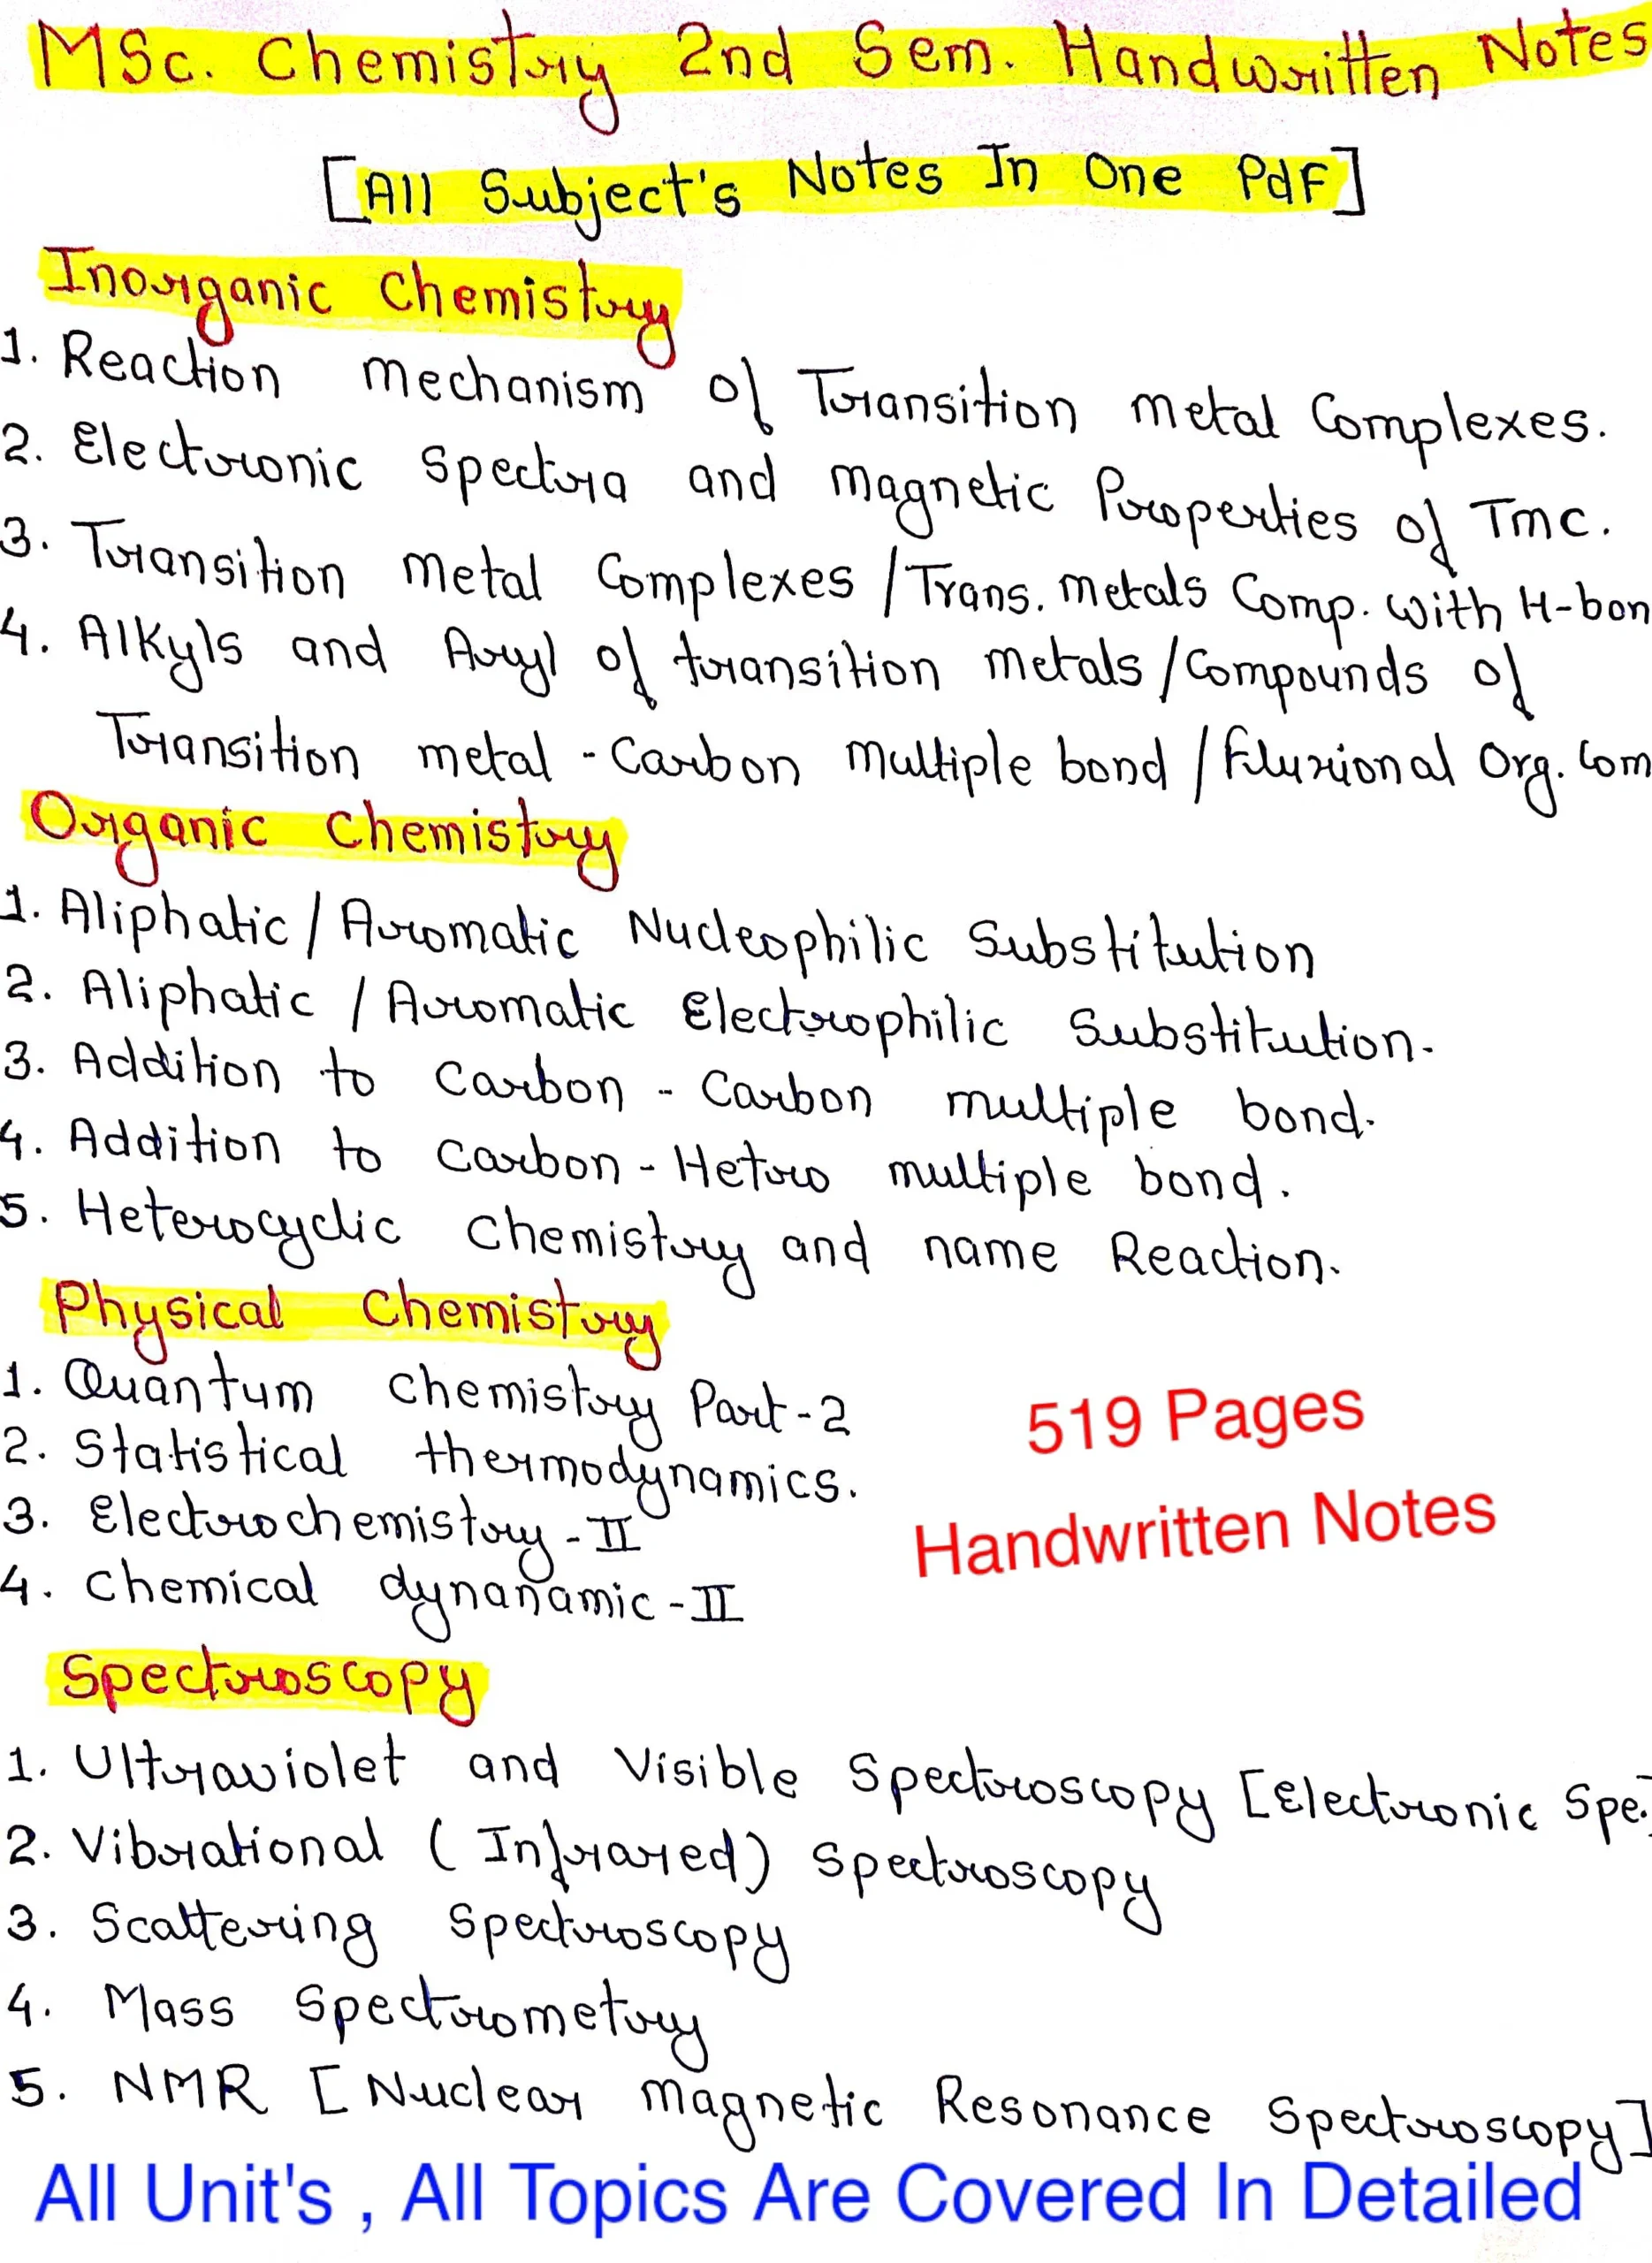 MSc. Chemistry 2nd Sem. Handwritten Notes
[All Subject's Notes In One Pdf]
Inorganic Chemistry
1. Reaction mechanism of Transition metal Complexes.
2. Electronic Spectra and magnetic Properties of Tmc.
3. Transition metal Complexes / Trans. metals Comp. with H-bon
4. Alkyls and Aryl of transition metals / Compounds of
Transition metal - Carbon multiple bond / Fluxional Org. Com
Organic Chemistry
1. Aliphatic / Aromatic Nucleophilic Substitution
2. Aliphatic / Aromatic Electrophilic Substitution.
3. Addition to Carbon - Carbon multiple bond.
4. Addition to Carbon - Hetro multiple bond.
5. Heterocyclic Chemistry and name Reaction.
Physical Chemistry
1. Quantum Chemistry Part-2
2. Statistical thermodynamics.
3. Electrochemistry - II
4. Chemical dynanamic - II
519 Pages
Handwritten Notes
Spectroscopy
1. Ultraviolet and Visible Spectroscopy [Electronic Spe.]
2. Vibrational (Infrared) Spectroscopy
3. Scattering Spectroscopy
4. Mass Spectrometry
5. NMR [Nuclear magnetic Resonance Spectroscopy]
All Unit's , All Topics Are Covered In Detailed